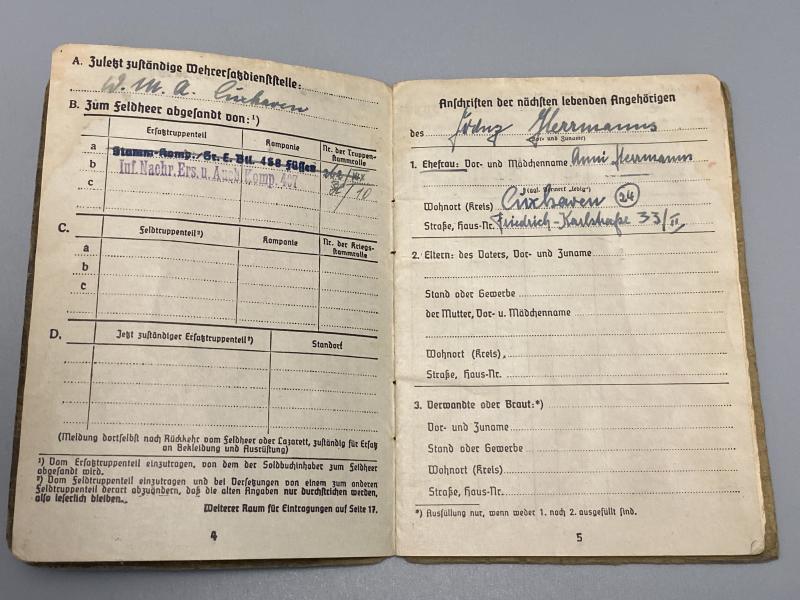 A. Zuletzt zuständige Wehrersatzdienststelle:
W. M. A. Cuxhaven
B. Zum Feldheer abgesandt von: ¹)
Ersatztruppenteil Kompanie Nr. der Truppen-
stammrolle
a Stamm-Komp./Gr. E. Btl. 468 Füssen
b Inf. Nachr. Ers. u. Ausb. Komp. 407
c
C. Feldtruppenteil²) Kompanie Nr. der Kriegs-
stammrolle
a
b
c
D. Jetzt zuständiger Ersatztruppenteil²) Standort
(Meldung dortselbst nach Rückkehr vom Feldheer oder Lazarett, zuständig für Ersatz
an Bekleidung und Ausrüstung)
¹) Vom Ersatztruppenteil einzutragen, von dem der Soldbuchinhaber zum Feldheer
abgesandt wird.
²) Vom Feldtruppenteil einzutragen und bei Versetzungen von einem zum anderen
Feldtruppenteil derart abzuändern, daß die alten Angaben nur durchstrichen werden,
also leserlich bleiben.
Weiterer Raum für Eintragungen auf Seite 17.
4
Anschriften der nächsten lebenden Angehörigen
des Herrmanns
(Vor- und Zuname)
1. Ehefrau: Vor- und Mädchenname Anni Herrmanns
(ggf. Vermerk „ledig“)
Wohnort (Kreis) Cuxhaven (24)
Straße, Haus-Nr. Friedrich-Karlstraße 33/II
2. Eltern: des Vaters, Vor- und Zuname
Stand oder Gewerbe
der Mutter, Vor- u. Mädchenname
Wohnort (Kreis)
Straße, Haus-Nr.
3. Verwandte oder Braut:*)
Vor- und Zuname
Stand oder Gewerbe
Wohnort (Kreis)
Straße, Haus-Nr.
*) Ausfüllung nur, wenn weder 1. noch 2. ausgefüllt sind.
5